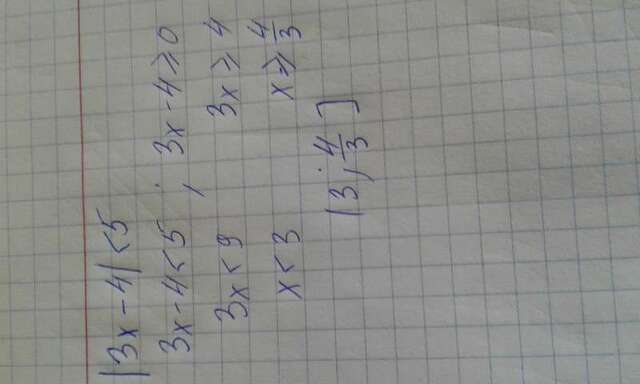 |3x-4|<5
3x-4<5 ; 3x-4⩾0
3x<9 3x⩾4
x<3 x⩾4/3
(3; 4/3]